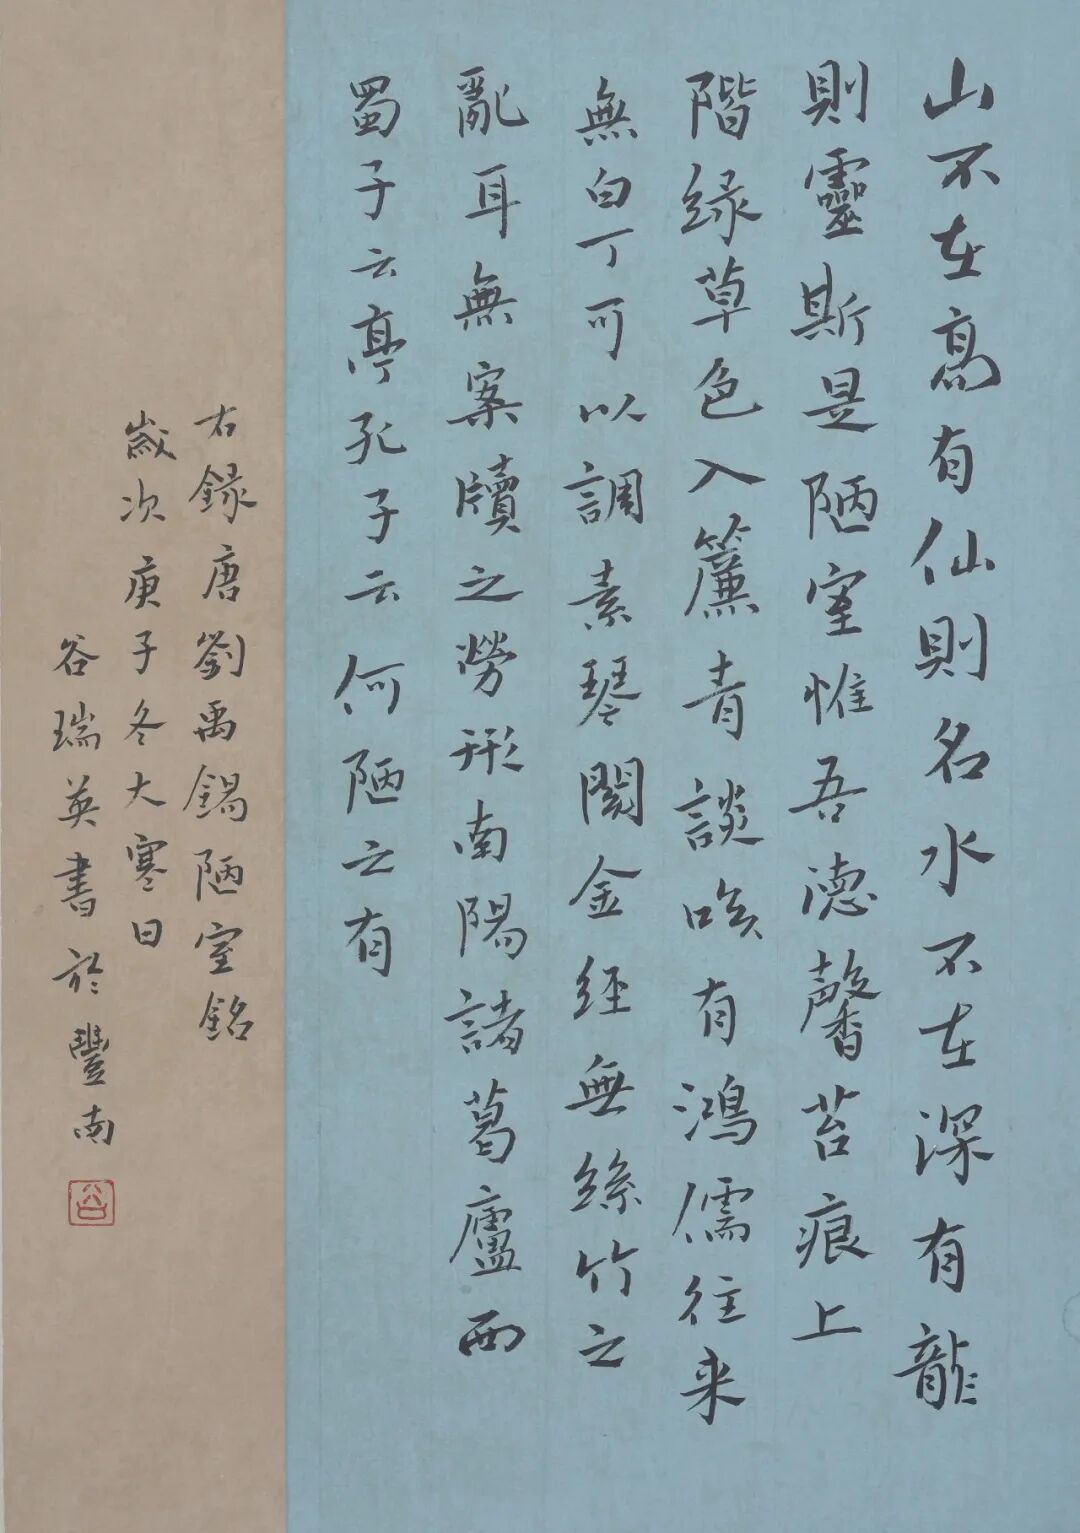 山不在高有仙則名水不在深有龍
則靈斯是陋室惟吾德馨苔痕上
階緑草色入簾青談咲有鴻儒往来
無白丁可以調素琴閱金経無絲竹之
亂耳無案牘之勞形南陽諸葛廬西
蜀子云亭孔子云何陋之有
右録唐劉禹錫陋室銘
歲次庚子冬大寒日
谷瑞英書於豐南
谷